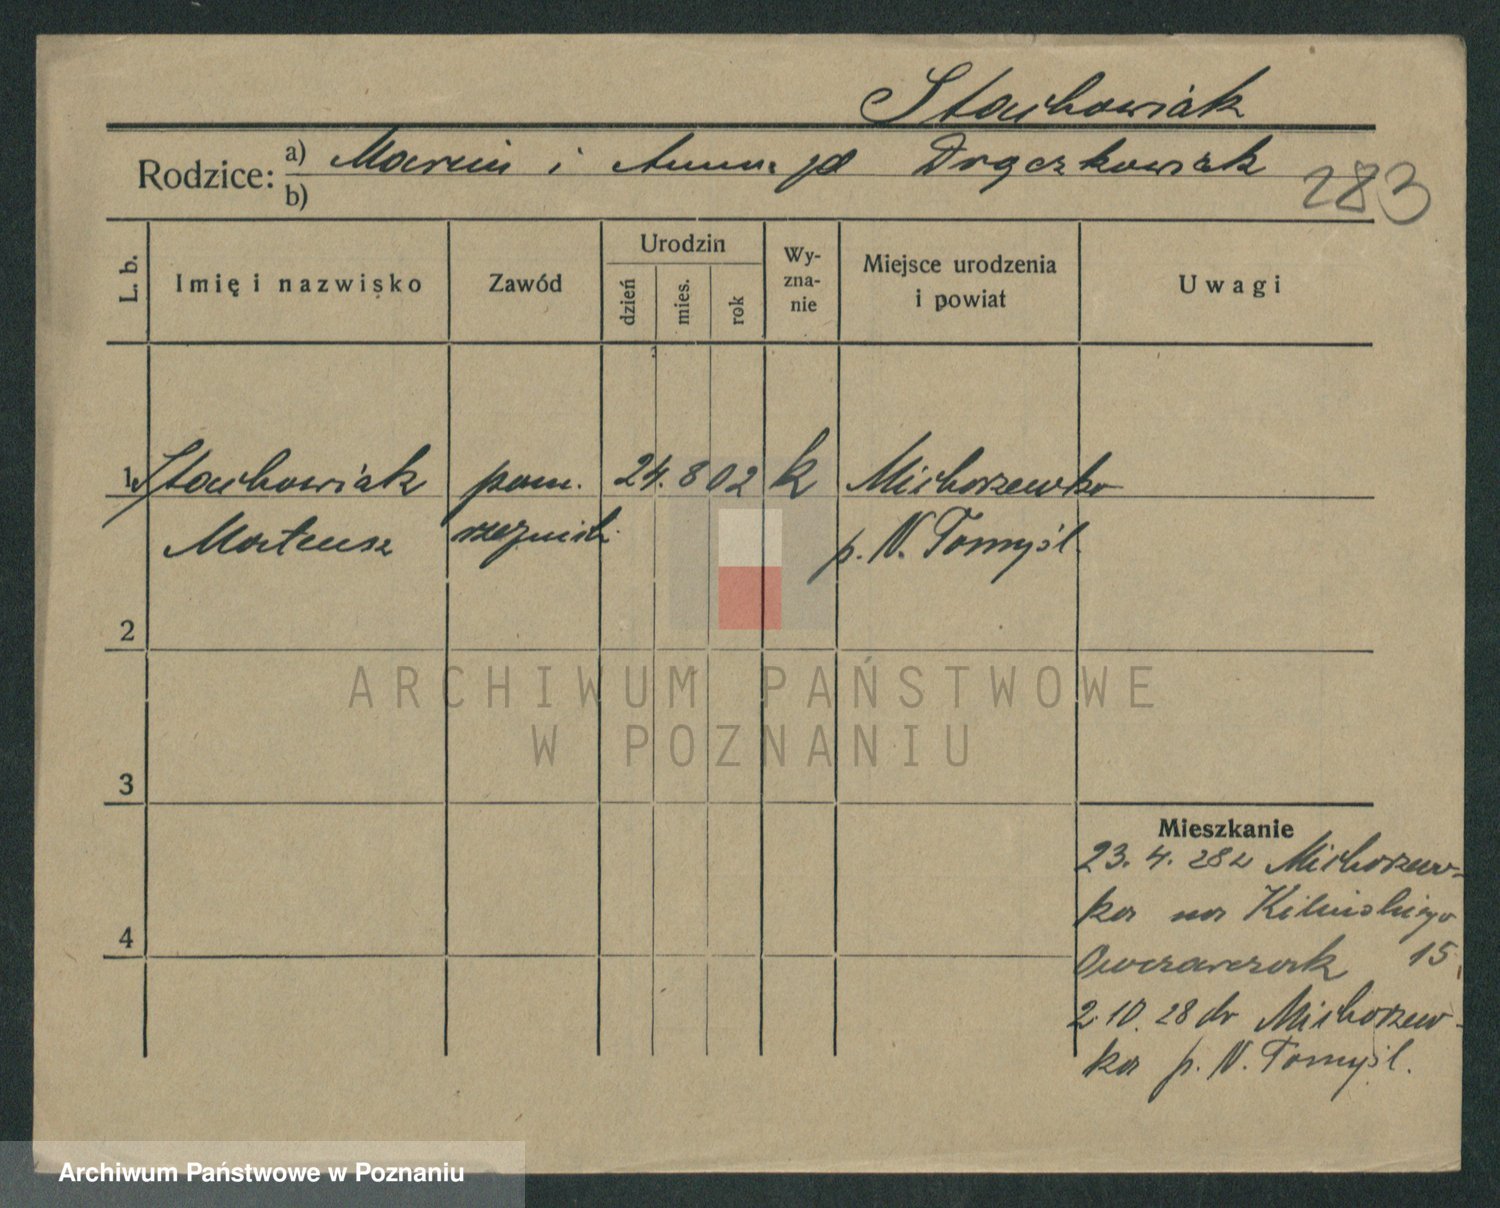 Stachowiak
Rodzice: a) Marcin i Anna zd Drączkowiak
b)
283
L. b.
Imię i nazwisko
Zawód
Urodzin
dzień
mies.
rok
Wy-
zna-
nie
Miejsce urodzenia
i powiat
Uwagi
1 Stachowiak pom. 24. 8 02 k Michorzewko
Mateusz rzeźnick. p. N. Tomyśl.
2
3
4
Mieszkanie
23. 4. 28 z Michorzew-
ka na Kilińskiego
Owczarczak 15
2 10. 28 do Michorzew-
ka p. N. Tomyśl.
ARCHIWUM PAŃSTWOWE
W POZNANIU
Archiwum Państwowe w Poznaniu